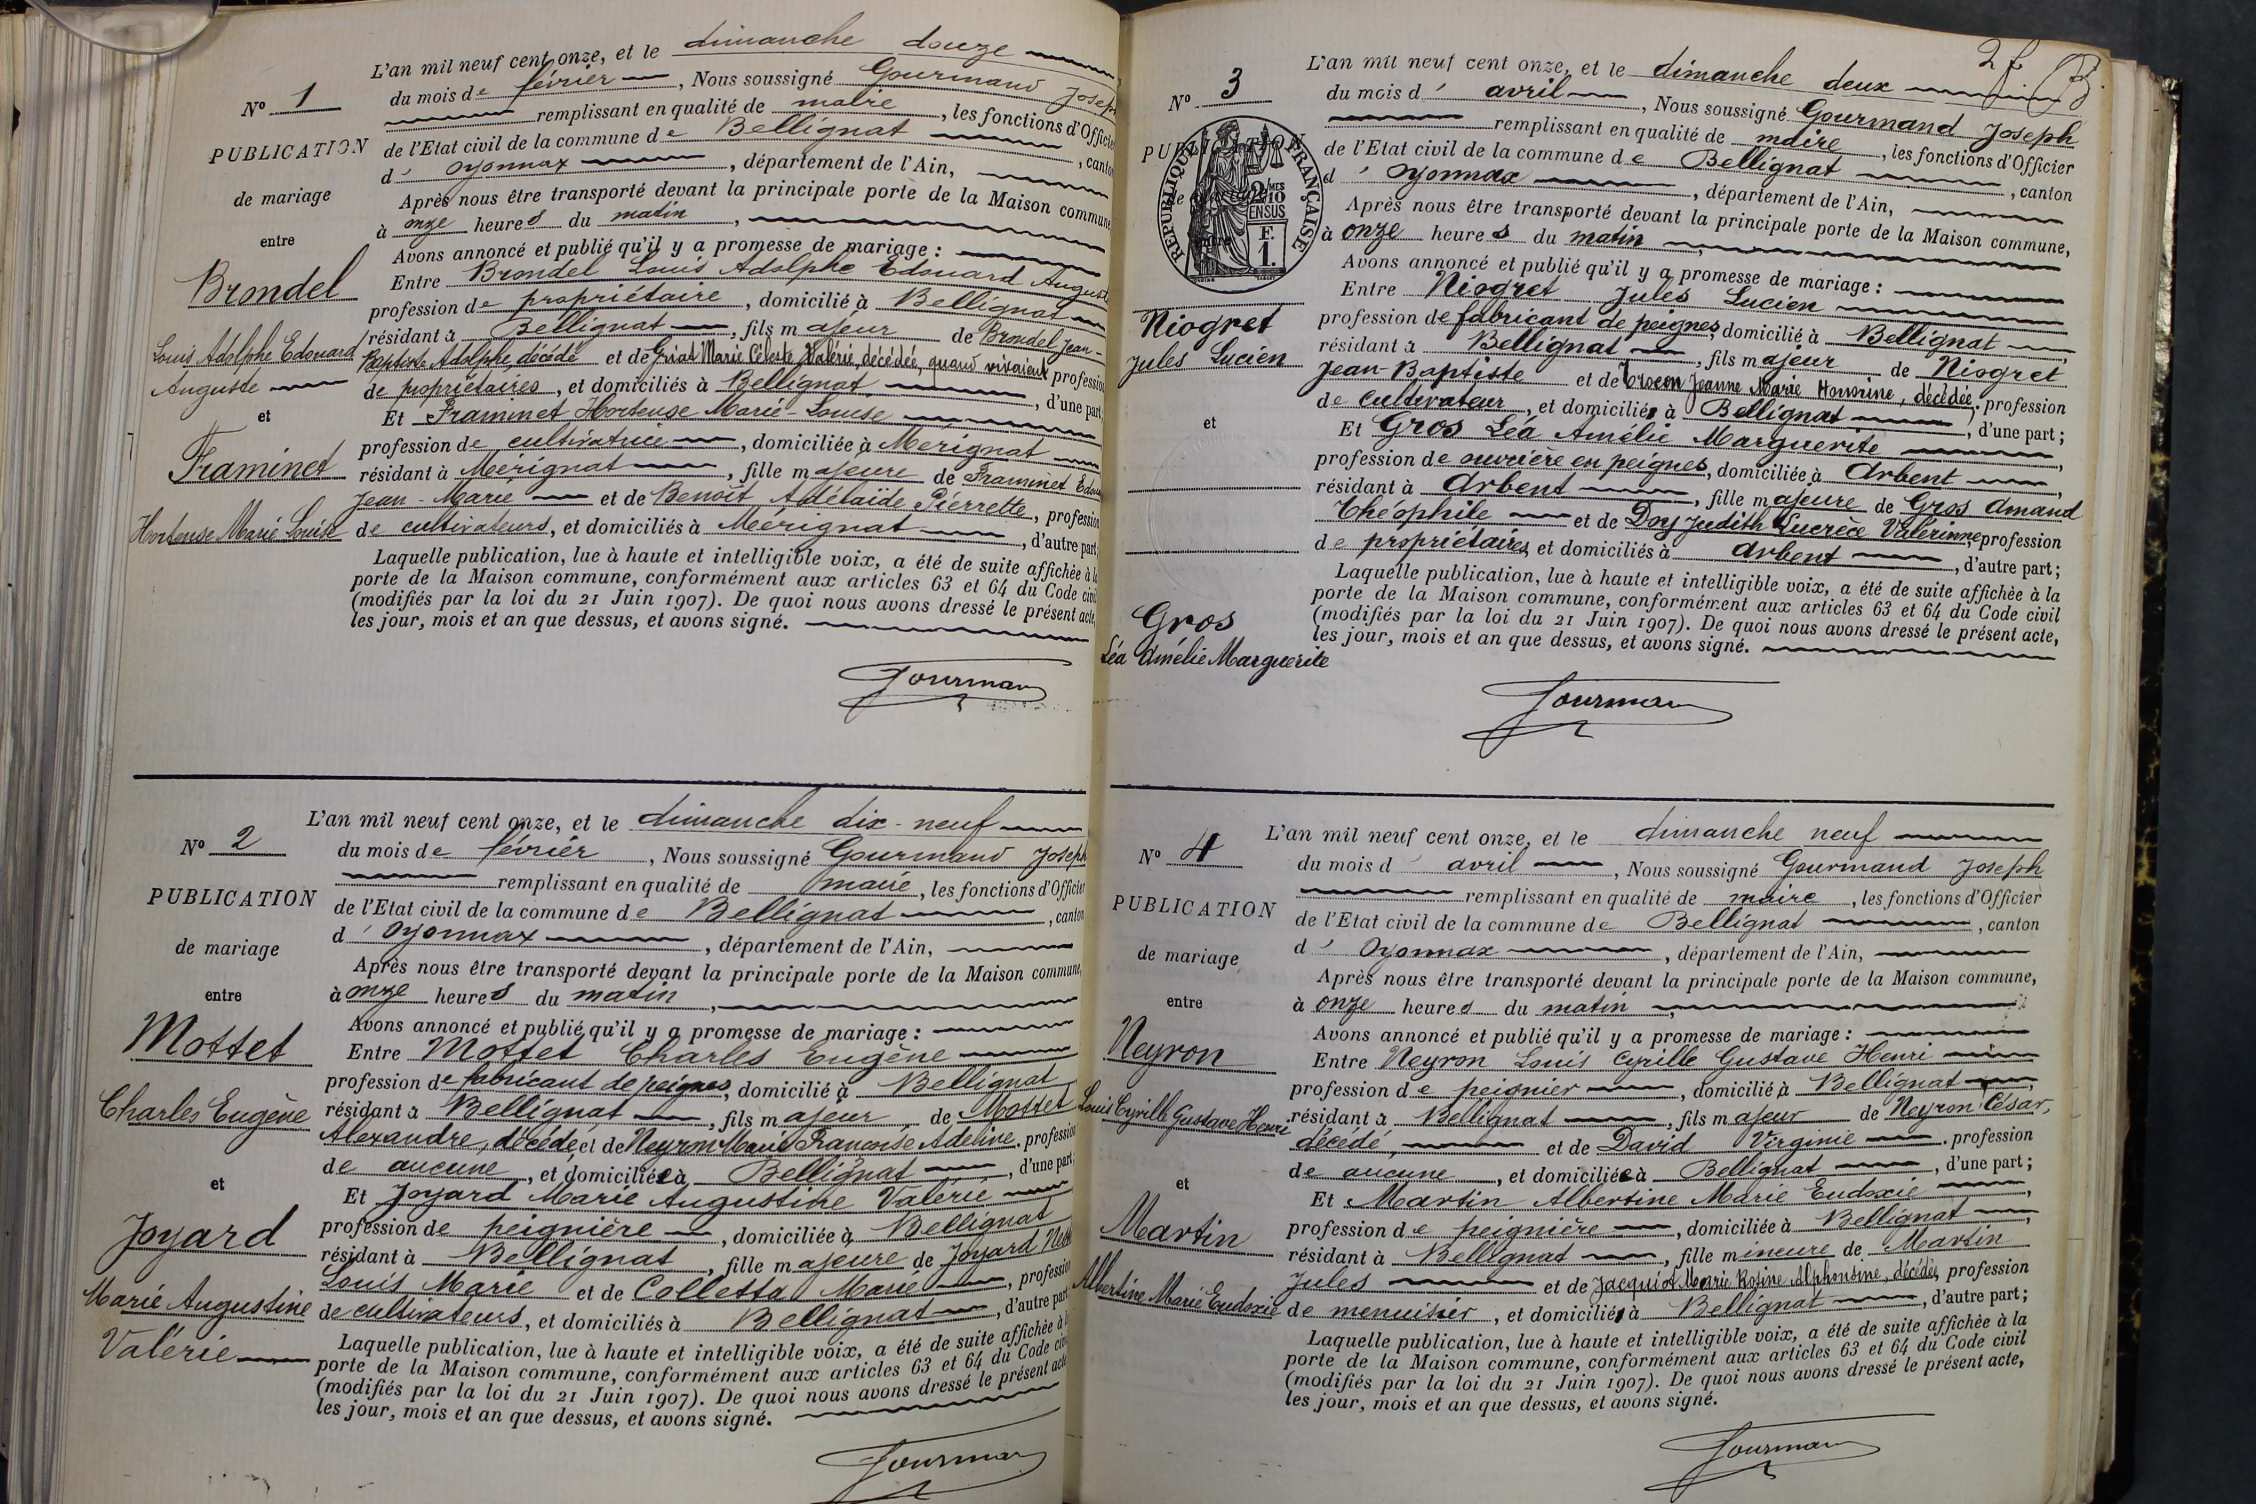 N° 1
PUBLICATION
de mariage
entre
Brondel
Louis Adolphe Edouard
Auguste
et
Framinet
Hortense Marie Louise
L'an mil neuf cent onze, et le dimanche douze
du mois de février, Nous soussigné Gourmand Joseph
remplissant en qualité de maire, les fonctions d'Officier
de l'Etat civil de la commune de Bellignat, canton
d'Oyonnax, département de l'Ain,
Après nous être transporté devant la principale porte de la Maison commune
à onze heures du matin,
Avons annoncé et publié qu'il y a promesse de mariage :
Entre Brondel Louis Adolphe Edouard Auguste
profession de propriétaire, domicilié à Bellignat
résidant à Bellignat, fils majeur de Brondel Jean-
Baptiste Adolphe, décédé et de Griat Marie Céleste Valérie, décédée, quand vivaient profession
de propriétaires, et domiciliés à Bellignat, d'une part
Et Framinet Hortense Marie-Louise
profession de cultivatrice, domiciliée à Mérignat
résidant à Mérignat, fille majeure de Framinet
Jean-Marie et de Benoît Adélaïde Pierrette, profession
de cultivateurs, et domiciliés à Mérignat, d'autre part;
Laquelle publication, lue à haute et intelligible voix, a été de suite affichée à la
porte de la Maison commune, conformément aux articles 63 et 64 du Code civil
(modifiés par la loi du 21 Juin 1907). De quoi nous avons dressé le présent acte,
les jour, mois et an que dessus, et avons signé.
Gourmand
N° 2
PUBLICATION
de mariage
entre
Mottet
Charles Eugène
et
Joyard
Marie Augustine
Valérie
L'an mil neuf cent onze, et le dimanche dix-neuf
du mois de février, Nous soussigné Gourmand Joseph
remplissant en qualité de maire, les fonctions d'Officier
de l'Etat civil de la commune de Bellignat, canton
d'Oyonnax, département de l'Ain,
Après nous être transporté devant la principale porte de la Maison commune,
à onze heures du matin,
Avons annoncé et publié qu'il y a promesse de mariage :
Entre Mottet Charles Eugène
profession de fabricant de peignes, domicilié à Bellignat
résidant à Bellignat, fils majeur de Mottet
Alexandre, décédé, et de Neyron Marie Françoise Adeline, profession
de aucune, et domiciliée à Bellignat, d'une part;
Et Joyard Marie Augustine Valérie
profession de peignière, domiciliée à Bellignat
résidant à Bellignat, fille majeure de Joyard
Louis Marie et de Colletta Marie, profession
de cultivateurs, et domiciliés à Bellignat, d'autre part
Laquelle publication, lue à haute et intelligible voix, a été de suite affichée à la
porte de la Maison commune, conformément aux articles 63 et 64 du Code civil
(modifiés par la loi du 21 Juin 1907). De quoi nous avons dressé le présent acte
les jour, mois et an que dessus, et avons signé.
Gourmand
2 f
N° 3
PUBLICATION
de mariage
entre
RÉPUBLIQUE FRANÇAISE
2/10 MES
EN SUS
F.
1.
Niogret
Jules Lucien
et
Gros
Léa Amélie Marguerite
L'an mil neuf cent onze, et le dimanche deux
du mois d'avril, Nous soussigné Gourmand Joseph
remplissant en qualité de maire, les fonctions d'Officier
de l'Etat civil de la commune de Bellignat, canton
d'Oyonnax, département de l'Ain,
Après nous être transporté devant la principale porte de la Maison commune,
à onze heures du matin,
Avons annoncé et publié qu'il y a promesse de mariage :
Entre Niogret Jules Lucien
profession de fabricant de peignes, domicilié à Bellignat,
résidant à Bellignat, fils majeur de Niogret
Jean-Baptiste et de Jeanne Marie Honorine, décédée, profession
de cultivateur, et domicilié à Bellignat, d'une part;
Et Gros Léa Amélie Marguerite,
profession de ouvrière en peignes, domiciliée à Arbent,
résidant à Arbent, fille majeure de Gros Amand
Théophile et de Doy Judith Lucrèce Valérinne, profession
de propriétaires, et domiciliés à Arbent, d'autre part;
Laquelle publication, lue à haute et intelligible voix, a été de suite affichée à la
porte de la Maison commune, conformément aux articles 63 et 64 du Code civil
(modifiés par la loi du 21 Juin 1907). De quoi nous avons dressé le présent acte,
les jour, mois et an que dessus, et avons signé.
Gourmand
N° 4
PUBLICATION
de mariage
entre
Neyron
Louis Cyrille Gustave Henri
et
Martin
Albertine Marie Eudoxie
L'an mil neuf cent onze, et le dimanche neuf
du mois d'avril, Nous soussigné Gourmand Joseph
remplissant en qualité de maire, les fonctions d'Officier
de l'Etat civil de la commune de Bellignat, canton
d'Oyonnax, département de l'Ain,
Après nous être transporté devant la principale porte de la Maison commune,
à onze heures du matin,
Avons annoncé et publié qu'il y a promesse de mariage :
Entre Neyron Louis Cyrille Gustave Henri
profession de peignier, domicilié à Bellignat,
résidant à Bellignat, fils majeur de Neyron César,
décédé, et de David Virginie, profession
de aucune, et domiciliée à Bellignat, d'une part;
Et Martin Albertine Marie Eudoxie,
profession de peignière, domiciliée à Bellignat,
résidant à Bellignat, fille mineure de Martin
Jules et de Jacquiot Marie Rosine Alphonsine, décédée, profession
de menuisier, et domicilié à Bellignat, d'autre part;
Laquelle publication, lue à haute et intelligible voix, a été de suite affichée à la
porte de la Maison commune, conformément aux articles 63 et 64 du Code civil
(modifiés par la loi du 21 Juin 1907). De quoi nous avons dressé le présent acte,
les jour, mois et an que dessus, et avons signé.
Gourmand